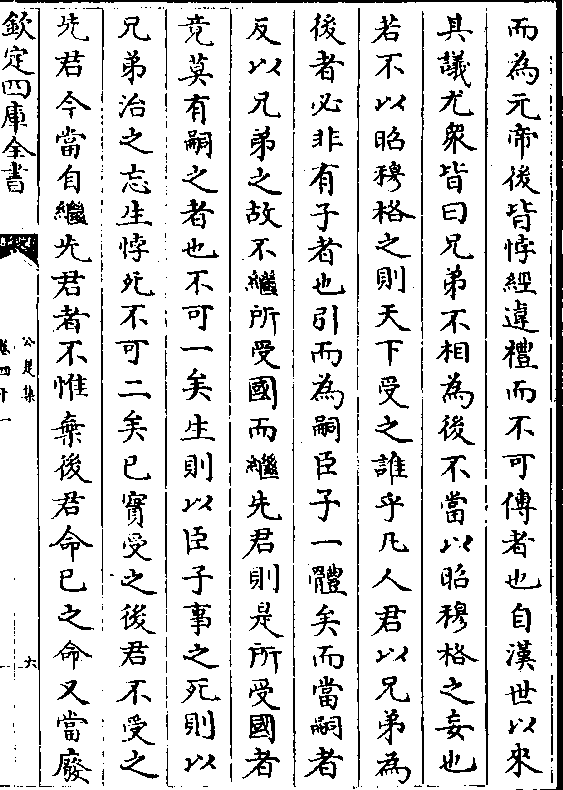 而為元帝後皆悖經違禮而不可傳者也自漢世以來
其議尤衆皆曰兄弟不相為後不當以昭穆格之妄也
若不以昭穆格之則天下受之誰乎凡人君以兄弟為
後者必非有子者也引而為嗣臣子一體矣而當嗣者
反以兄弟之故不繼所受國而繼先君則是所受國者
竟莫有嗣之者也不可一矣生則以臣子事之死則以
兄弟治之忘生悖死不可二矣已實受之後君不受之
先君今當自繼先君者不惟棄後君命已之命又當廢
欽定四庫全書
公是集
卷四十一
六